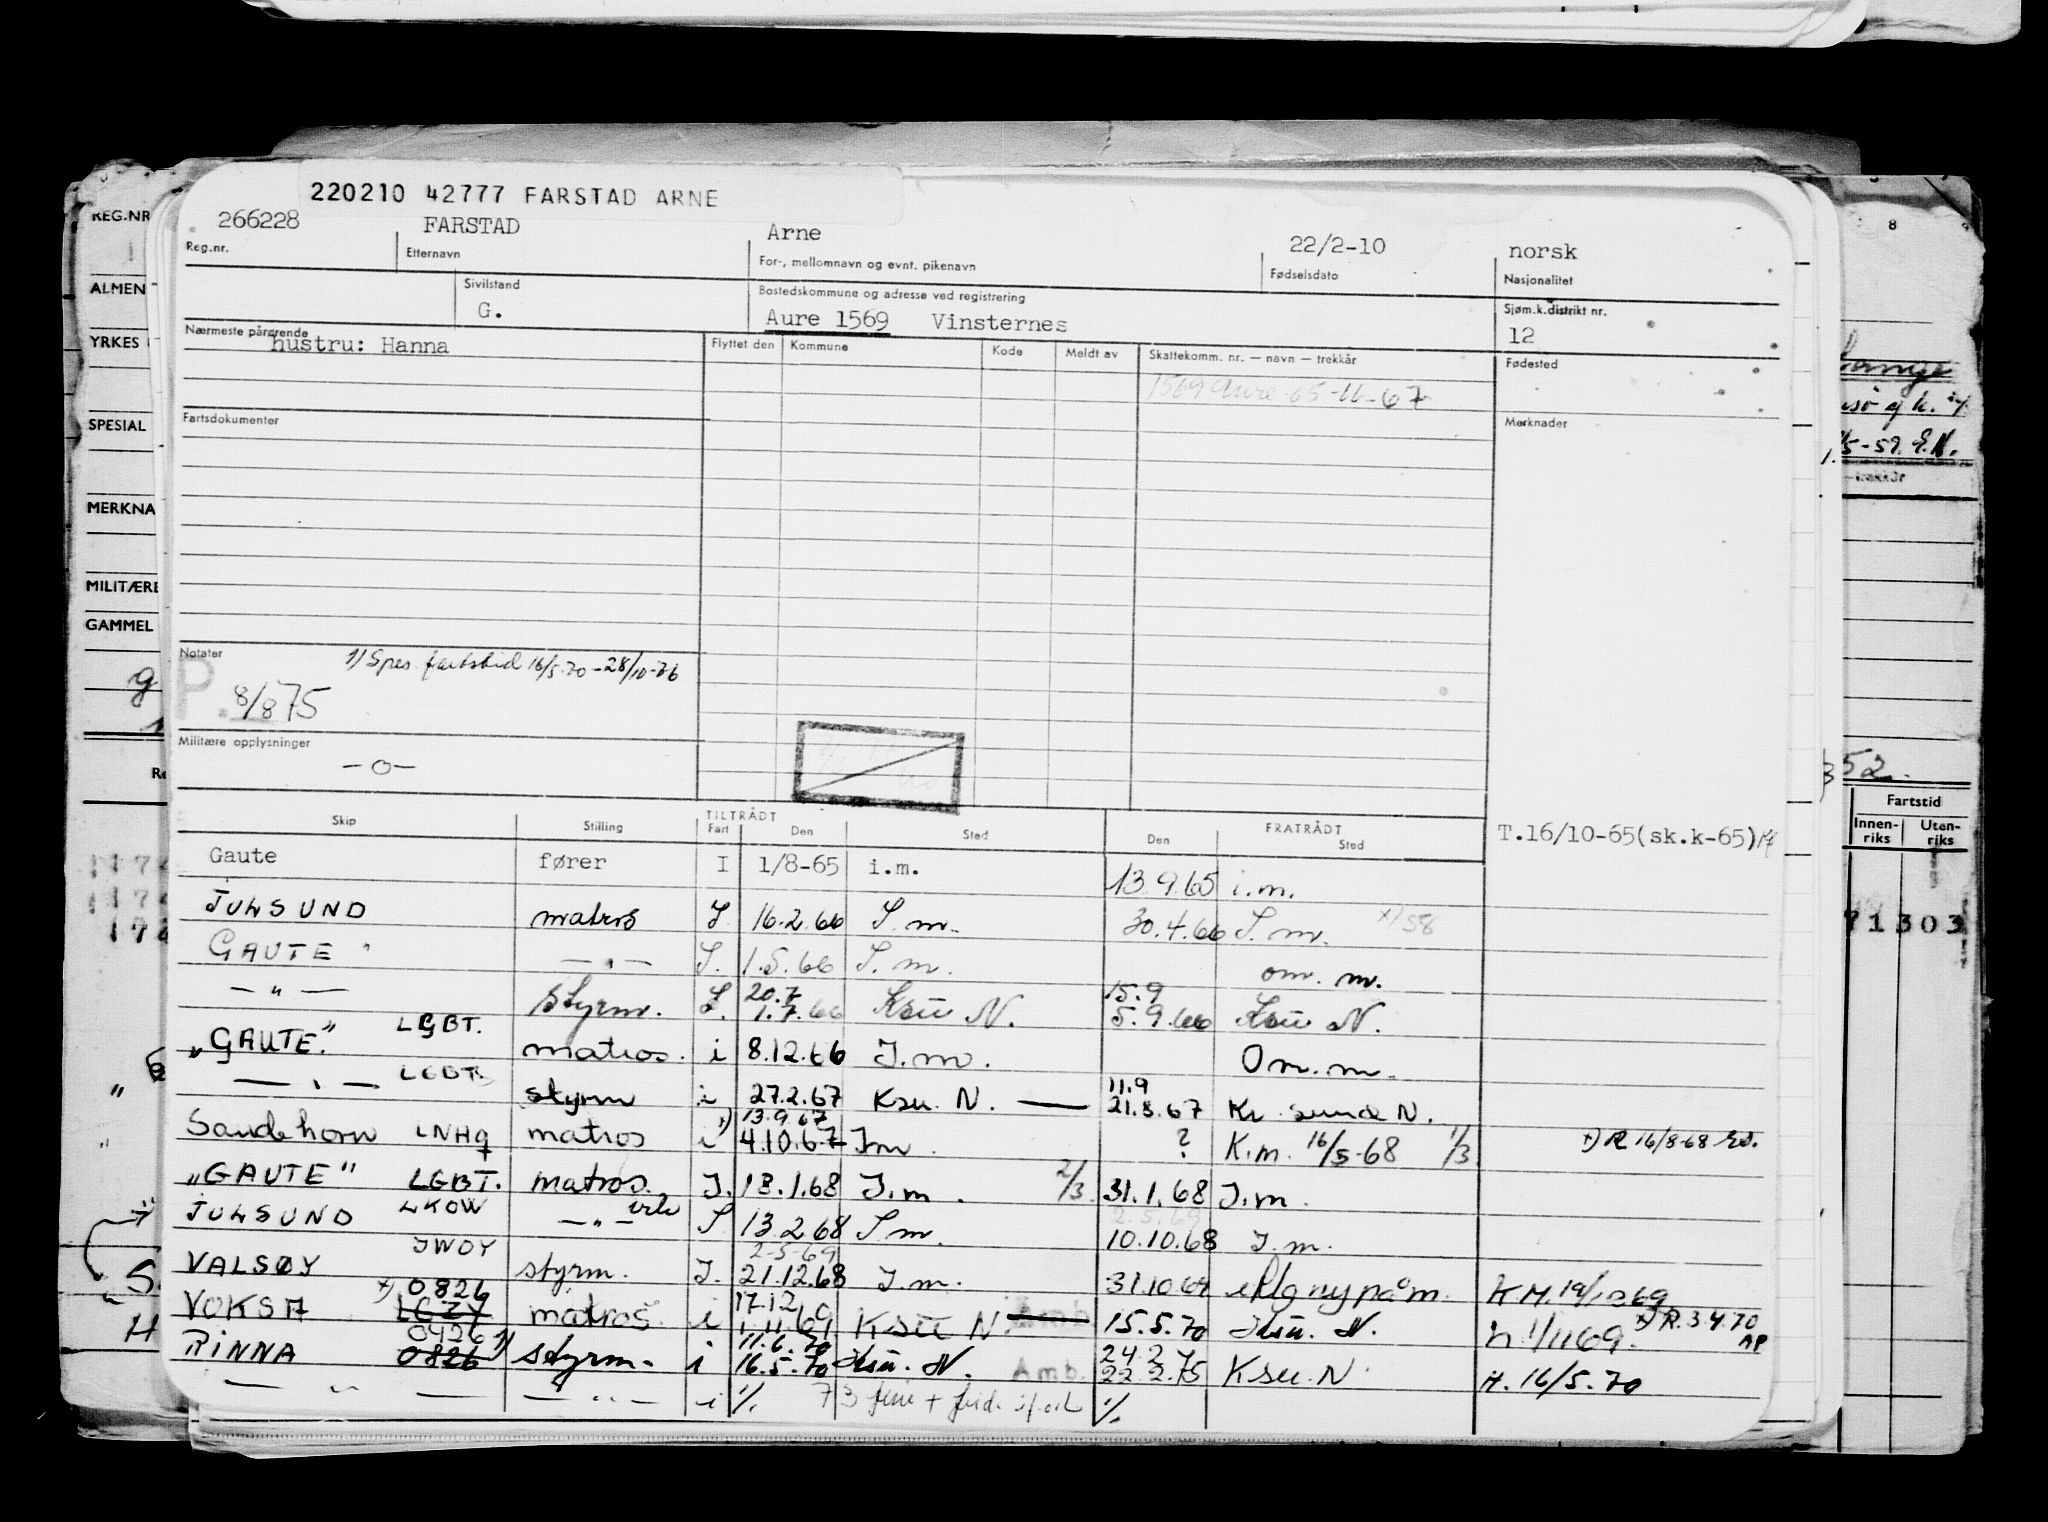 220210 42777 FARSTAD ARNE
266228 FARSTAD Arne 22/2-10 norsk
Reg.nr. Etternavn For-, mellomnavn og evnt. pikenavn Fødselsdato Nasjonalitet
Sivilstand Bostedskommune og adresse ved registrering Sjøm.k.distrikt nr.
G. Aure 1569 Vinsternes 12
Nærmeste pårørende Flyttet den Kommune Kode Meldt av Skattekomm. nr. — navn — trekkår Fødested
hustru: Hanna
1569 Aure 65-66-67
Fartsdokumenter Merknader
Notater
1) Spes. fartsbid 16/5.70-28/10-76
P. 8/8 75
Militære opplysninger
—o—
TILTRÅDT FRATRÅDT
Skip Stilling Fart Den Sted Den Sted
T.16/10-65(sk.k-65)
Gaute fører I 1/8-65 i.m. 13.9.65 i.m.
JULSUND matros I. 16.2.66 I.m. 30.4.66 I.m. x)58
GAUTE —"— I. 1.5.66 I.m. om.m.
20.7 15.9
—"— styrm. I. 1.7.66 Ksu N. 5.9.66 Ksu N.
„GAUTE" LGBT. matros. i 8.12.66 I.m. Om.m.
11.9
—"— LGBT styrm i 27.2.67 Ksu. N. — 21.8.67 Kr. sund N.
13.9.67
Sandehorn LNHQ matros i x) 4.10.67 Im. ? K.m. 16/5-68 1/3 x) R 16/8-68
„GAUTE" LGBT. matros. I. 18.1.68 I.m. 2/3 31.1.68 I.m.
2.5.69
JULSUND LKOW —"— I 13.2.68 I.m. 10.10.68 I.m.
2-5-69
VALSØY JWOY styrm. I. 21.12.68 I.m. 31.10.69 K.M. 19/12 69
17.12
VOKSA x) 0826 matros. i 1.11.69 Ksu N. 15.5.70 Ksu. N. 1/11 69. x) R.3 4 70 AP
0426 1) 11.6.70 24.2
RINNA 0826 styrm. i 16.5.70 Ksu. N. Amb. 22.2.75 Ksu. N. H. 16/5.70
—"— —"— i 1/. 73 1/.
REG.NR
ALMEN
YRKES
SPESIAL
MERKNA
MILITÆRE
GAMMEL
8
52.
Fartstid
Innen-riks Uten-riks
71303